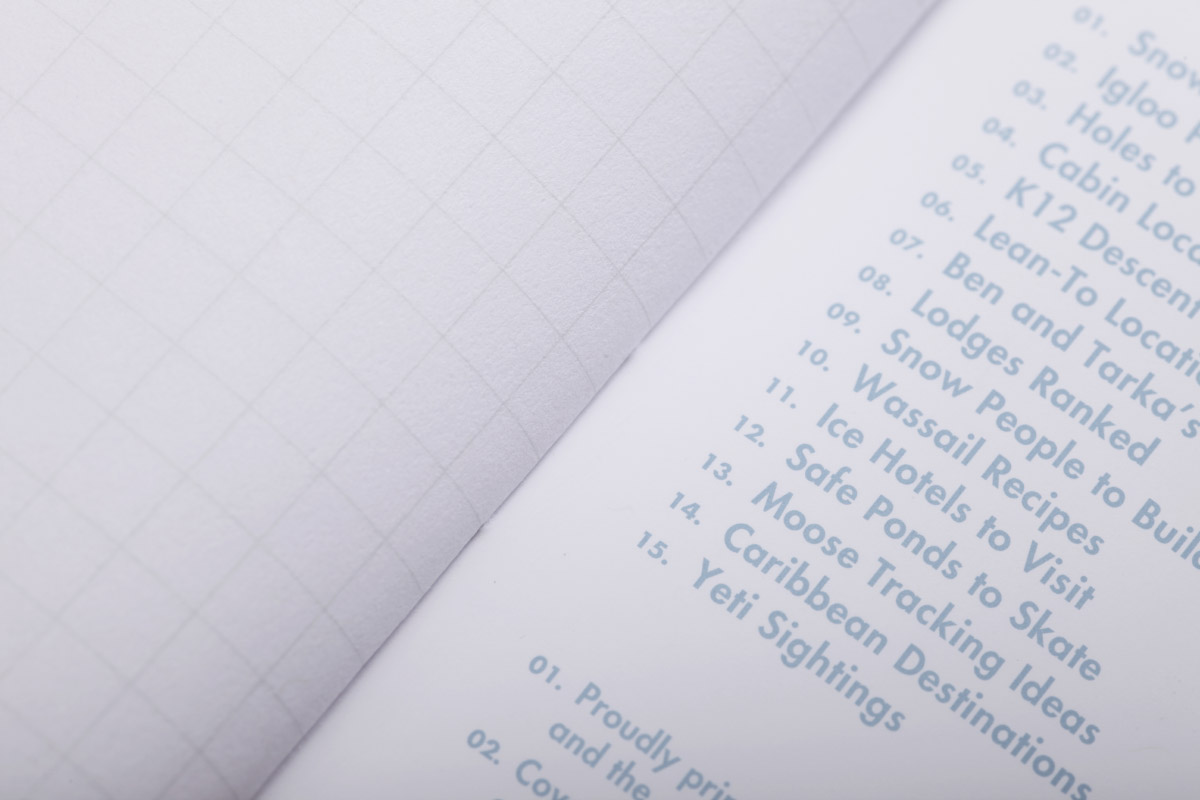 01. Snow
02. Igloo
03. Holes to
04. Cabin
05. K12 Descent
06. Lean-To
07. Ben and Tarka's
08. Lodges Ranked
09. Snow People to Build
10. Wassail Recipes
11. Ice Hotels to Visit
12. Safe Ponds to Skate
13. Moose Tracking Ideas
14. Caribbean Destinations
15. Yeti Sightings
01. Proudly
and the
02.